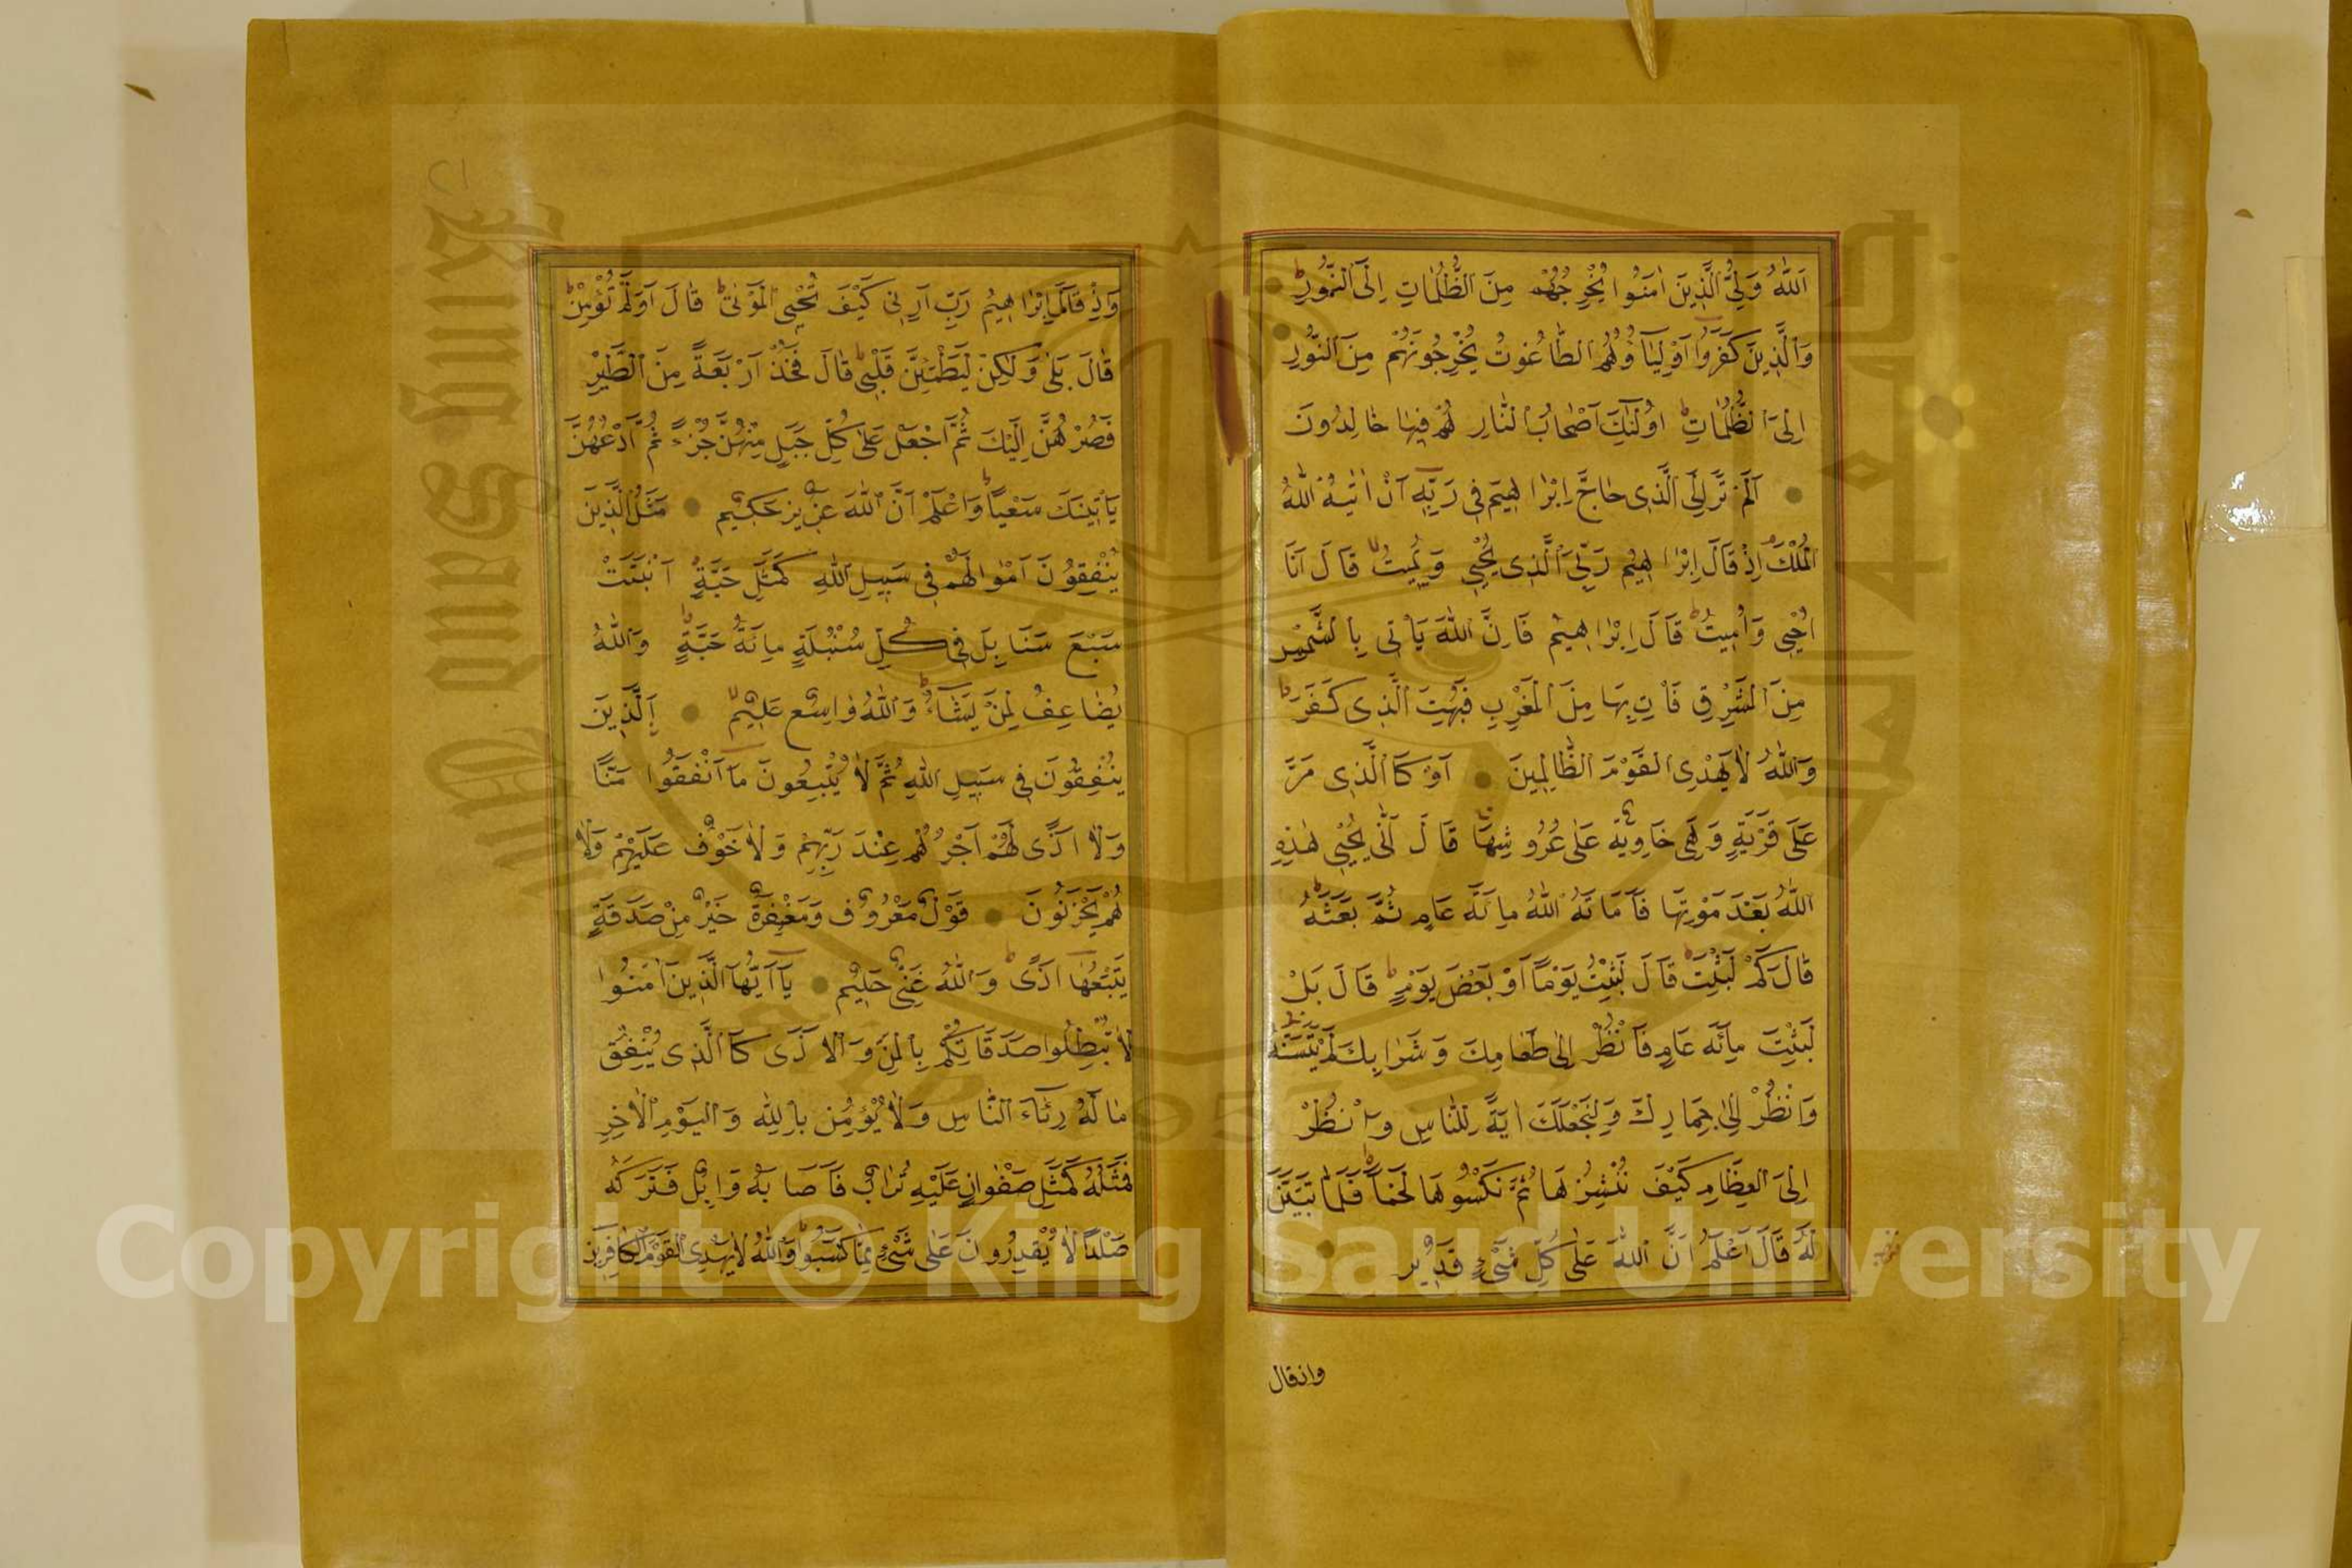 اَللّٰهُ وَلِيُّ الَّذِينَ اٰمَنُوا يُخْرِجُهُمْ مِنَ الظُّلُمَاتِ اِلَى النُّورِ
وَالَّذِينَ كَفَرُوا اَوْلِيَاؤُهُمُ الطَّاغُوتُ يُخْرِجُونَهُمْ مِنَ النُّورِ
اِلَى الظُّلُمَاتِ اُولٰئِكَ اَصْحَابُ النَّارِ هُمْ فِيهَا خَالِدُونَ
اَلَمْ تَرَ اِلَى الَّذِى حَاجَّ اِبْرَاهِيمَ فِى رَبِّهِ اَنْ اٰتٰيهُ اللّٰهُ
الْمُلْكَ اِذْ قَالَ اِبْرَاهِيمُ رَبِّىَ الَّذِى يُحْيِى وَيُمِيتُ قَالَ اَنَا
اُحْيِى وَاُمِيتُ قَالَ اِبْرَاهِيمُ فَاِنَّ اللّٰهَ يَاْتِى بِالشَّمْسِ
مِنَ الْمَشْرِقِ فَاْتِ بِهَا مِنَ الْمَغْرِبِ فَبُهِتَ الَّذِى كَفَرَ
وَاللّٰهُ لَا يَهْدِى الْقَوْمَ الظَّالِمِينَ اَوْ كَالَّذِى مَرَّ
عَلٰى قَرْيَةٍ وَهِىَ خَاوِيَةٌ عَلٰى عُرُوشِهَا قَالَ اَنّٰى يُحْيِى هٰذِهِ
اللّٰهُ بَعْدَ مَوْتِهَا فَاَمَاتَهُ اللّٰهُ مِائَةَ عَامٍ ثُمَّ بَعَثَهُ
قَالَ كَمْ لَبِثْتَ قَالَ لَبِثْتُ يَوْمًا اَوْ بَعْضَ يَوْمٍ قَالَ بَلْ
لَبِثْتَ مِائَةَ عَامٍ فَانْظُرْ اِلٰى طَعَامِكَ وَشَرَابِكَ لَمْ يَتَسَنَّهْ
وَانْظُرْ اِلٰى حِمَارِكَ وَلِنَجْعَلَكَ اٰيَةً لِلنَّاسِ وَانْظُرْ
اِلَى الْعِظَامِ كَيْفَ نُنْشِزُهَا ثُمَّ نَكْسُوهَا لَحْمًا فَلَمَّا تَبَيَّنَ
لَهُ قَالَ اَعْلَمُ اَنَّ اللّٰهَ عَلٰى كُلِّ شَىْءٍ قَدِيرٌ
وانقال
وَاِذْ قَالَ اِبْرَاهِيمُ رَبِّ اَرِنِى كَيْفَ تُحْيِى الْمَوْتٰى قَالَ اَوَلَمْ تُؤْمِنْ
قَالَ بَلٰى وَلٰكِنْ لِيَطْمَئِنَّ قَلْبِى قَالَ فَخُذْ اَرْبَعَةً مِنَ الطَّيْرِ
فَصُرْهُنَّ اِلَيْكَ ثُمَّ اجْعَلْ عَلٰى كُلِّ جَبَلٍ مِنْهُنَّ جُزْءً ثُمَّ ادْعُهُنَّ
يَاْتِينَكَ سَعْيًا وَاعْلَمْ اَنَّ اللّٰهَ عَزِيزٌ حَكِيمٌ مَثَلُ الَّذِينَ
يُنْفِقُونَ اَمْوَالَهُمْ فِى سَبِيلِ اللّٰهِ كَمَثَلِ حَبَّةٍ اَنْبَتَتْ
سَبْعَ سَنَابِلَ فِى كُلِّ سُنْبُلَةٍ مِائَةُ حَبَّةٍ وَاللّٰهُ
يُضَاعِفُ لِمَنْ يَشَاءُ وَاللّٰهُ وَاسِعٌ عَلِيمٌ اَلَّذِينَ
يُنْفِقُونَ فِى سَبِيلِ اللّٰهِ ثُمَّ لَا يُتْبِعُونَ مَا اَنْفَقُوا مَنًّا
وَلَا اَذًى لَهُمْ اَجْرُهُمْ عِنْدَ رَبِّهِمْ وَلَا خَوْفٌ عَلَيْهِمْ وَلَا
هُمْ يَحْزَنُونَ قَوْلٌ مَعْرُوفٌ وَمَغْفِرَةٌ خَيْرٌ مِنْ صَدَقَةٍ
يَتْبَعُهَا اَذًى وَاللّٰهُ غَنِىٌّ حَلِيمٌ يَا اَيُّهَا الَّذِينَ اٰمَنُوا
لَا تُبْطِلُوا صَدَقَاتِكُمْ بِالْمَنِّ وَالْاَذٰى كَالَّذِى يُنْفِقُ
مَالَهُ رِئَاءَ النَّاسِ وَلَا يُؤْمِنُ بِاللّٰهِ وَالْيَوْمِ الْاٰخِرِ
فَمَثَلُهُ كَمَثَلِ صَفْوَانٍ عَلَيْهِ تُرَابٌ فَاَصَابَهُ وَابِلٌ فَتَرَكَهُ
صَلْدًا لَا يَقْدِرُونَ عَلٰى شَىْءٍ مِمَّا كَسَبُوا وَاللّٰهُ لَا يَهْدِى الْقَوْمَ الْكَافِرِينَ
Copyright © King Saud University